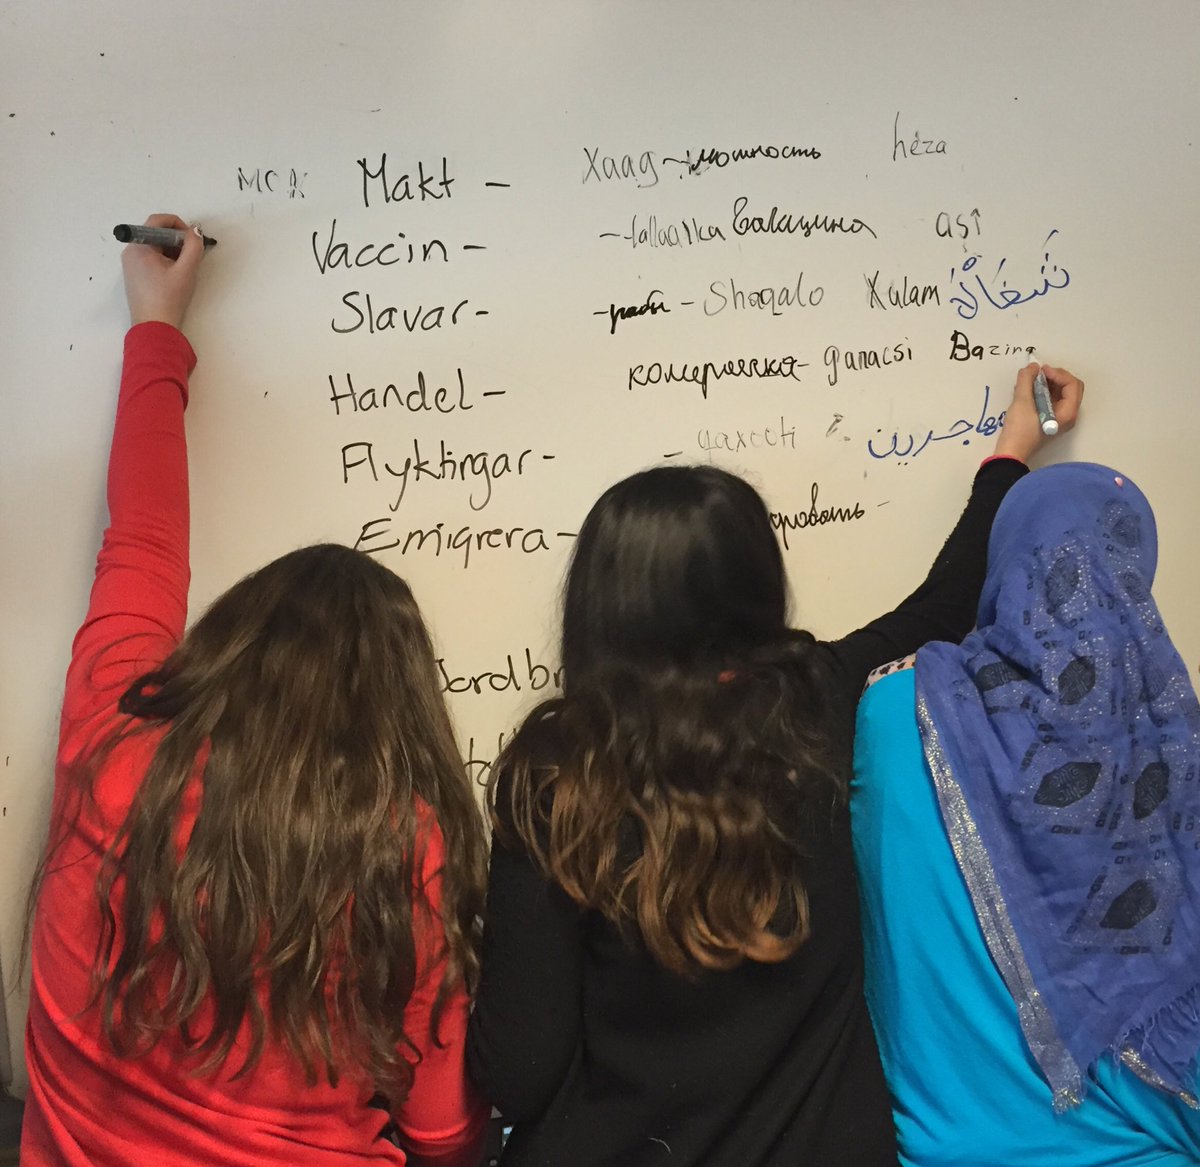 Makt - Xaag - мошность hêza
Vaccin - - tallaalka вакцина aşı
Slavar - - рабы - Shaqalo Xulam شَغَالَةْ
Handel - комерческая - ganacsi Bazirga
Flyktingar - - qaxooti مهاجرين
Emigrera - ровать -
Jordbr